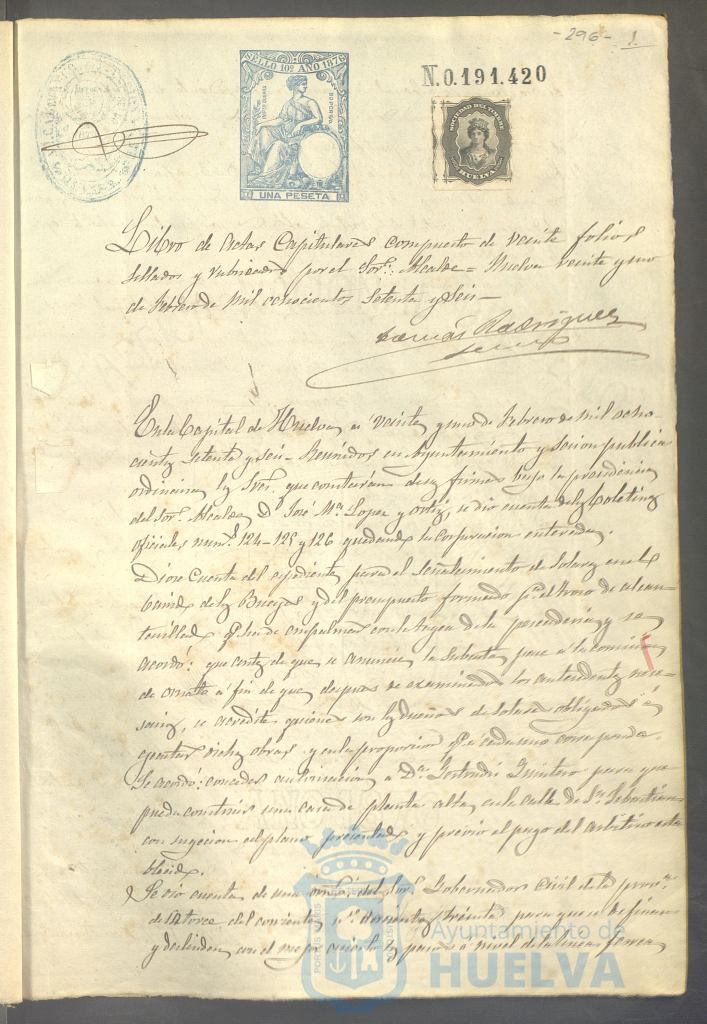 -296- 1.
SELLO 10º AÑO 1876
UNA PESETA
N.0.191.420
SOCIEDAD DEL TIMBRE
HUELVA
Libro de Actas Capitulares compuesto de veinte folios
sellados y rubricados por el Sor. Alcalde = Huelva veinte y uno
de Febrero de mil ochocientos setenta y seis =
Rodriguez
En la Capital de Huelva a veinte y uno de Febrero de mil ocho-
cientos setenta y seis = Reunidos en Ayuntamiento y sesion publica
ordinaria los Sres. que constarán de sus firmas bajo la presidencia
del Sor. Alcalde Dn. José Ma. Lopez y Ortiz, se dio cuenta de los Boletines
oficiales num. 124-125 y 126 quedando la corporacion enterada.
Diose cuenta del espediente para el señalamiento de solares en el
de los y del presupuesto formado pa. el trozo de alcan-
tarillado qe. ha de empalmar con la de la pescaderia y se
acordó: que antes de que se anuncie la subasta pase a la comision
de ornato a fin de que despues de examinados los antecedentes nece-
sarios, se acredite quienes son los dueños de solares obligados a
ejecutar dichas obras y en la proporcion qe. a cada uno corresponde.
Se acordó: conceder autorizacion a Da. Gertrudis Quintero para que
pueda construir una casa de planta alta en la calle de Sn. Sebastian
con sugecion al plano presentado y previo el pago del arbitrio esta-
blecido.
Se dio cuenta de una del Sor. Gobernador Civil de la provª.
de catorce del corriente nº. para que se
y deslinden con el mejor acierto los pasos a nivel de la linea ferrea
Ayuntamiento de
HUELVA